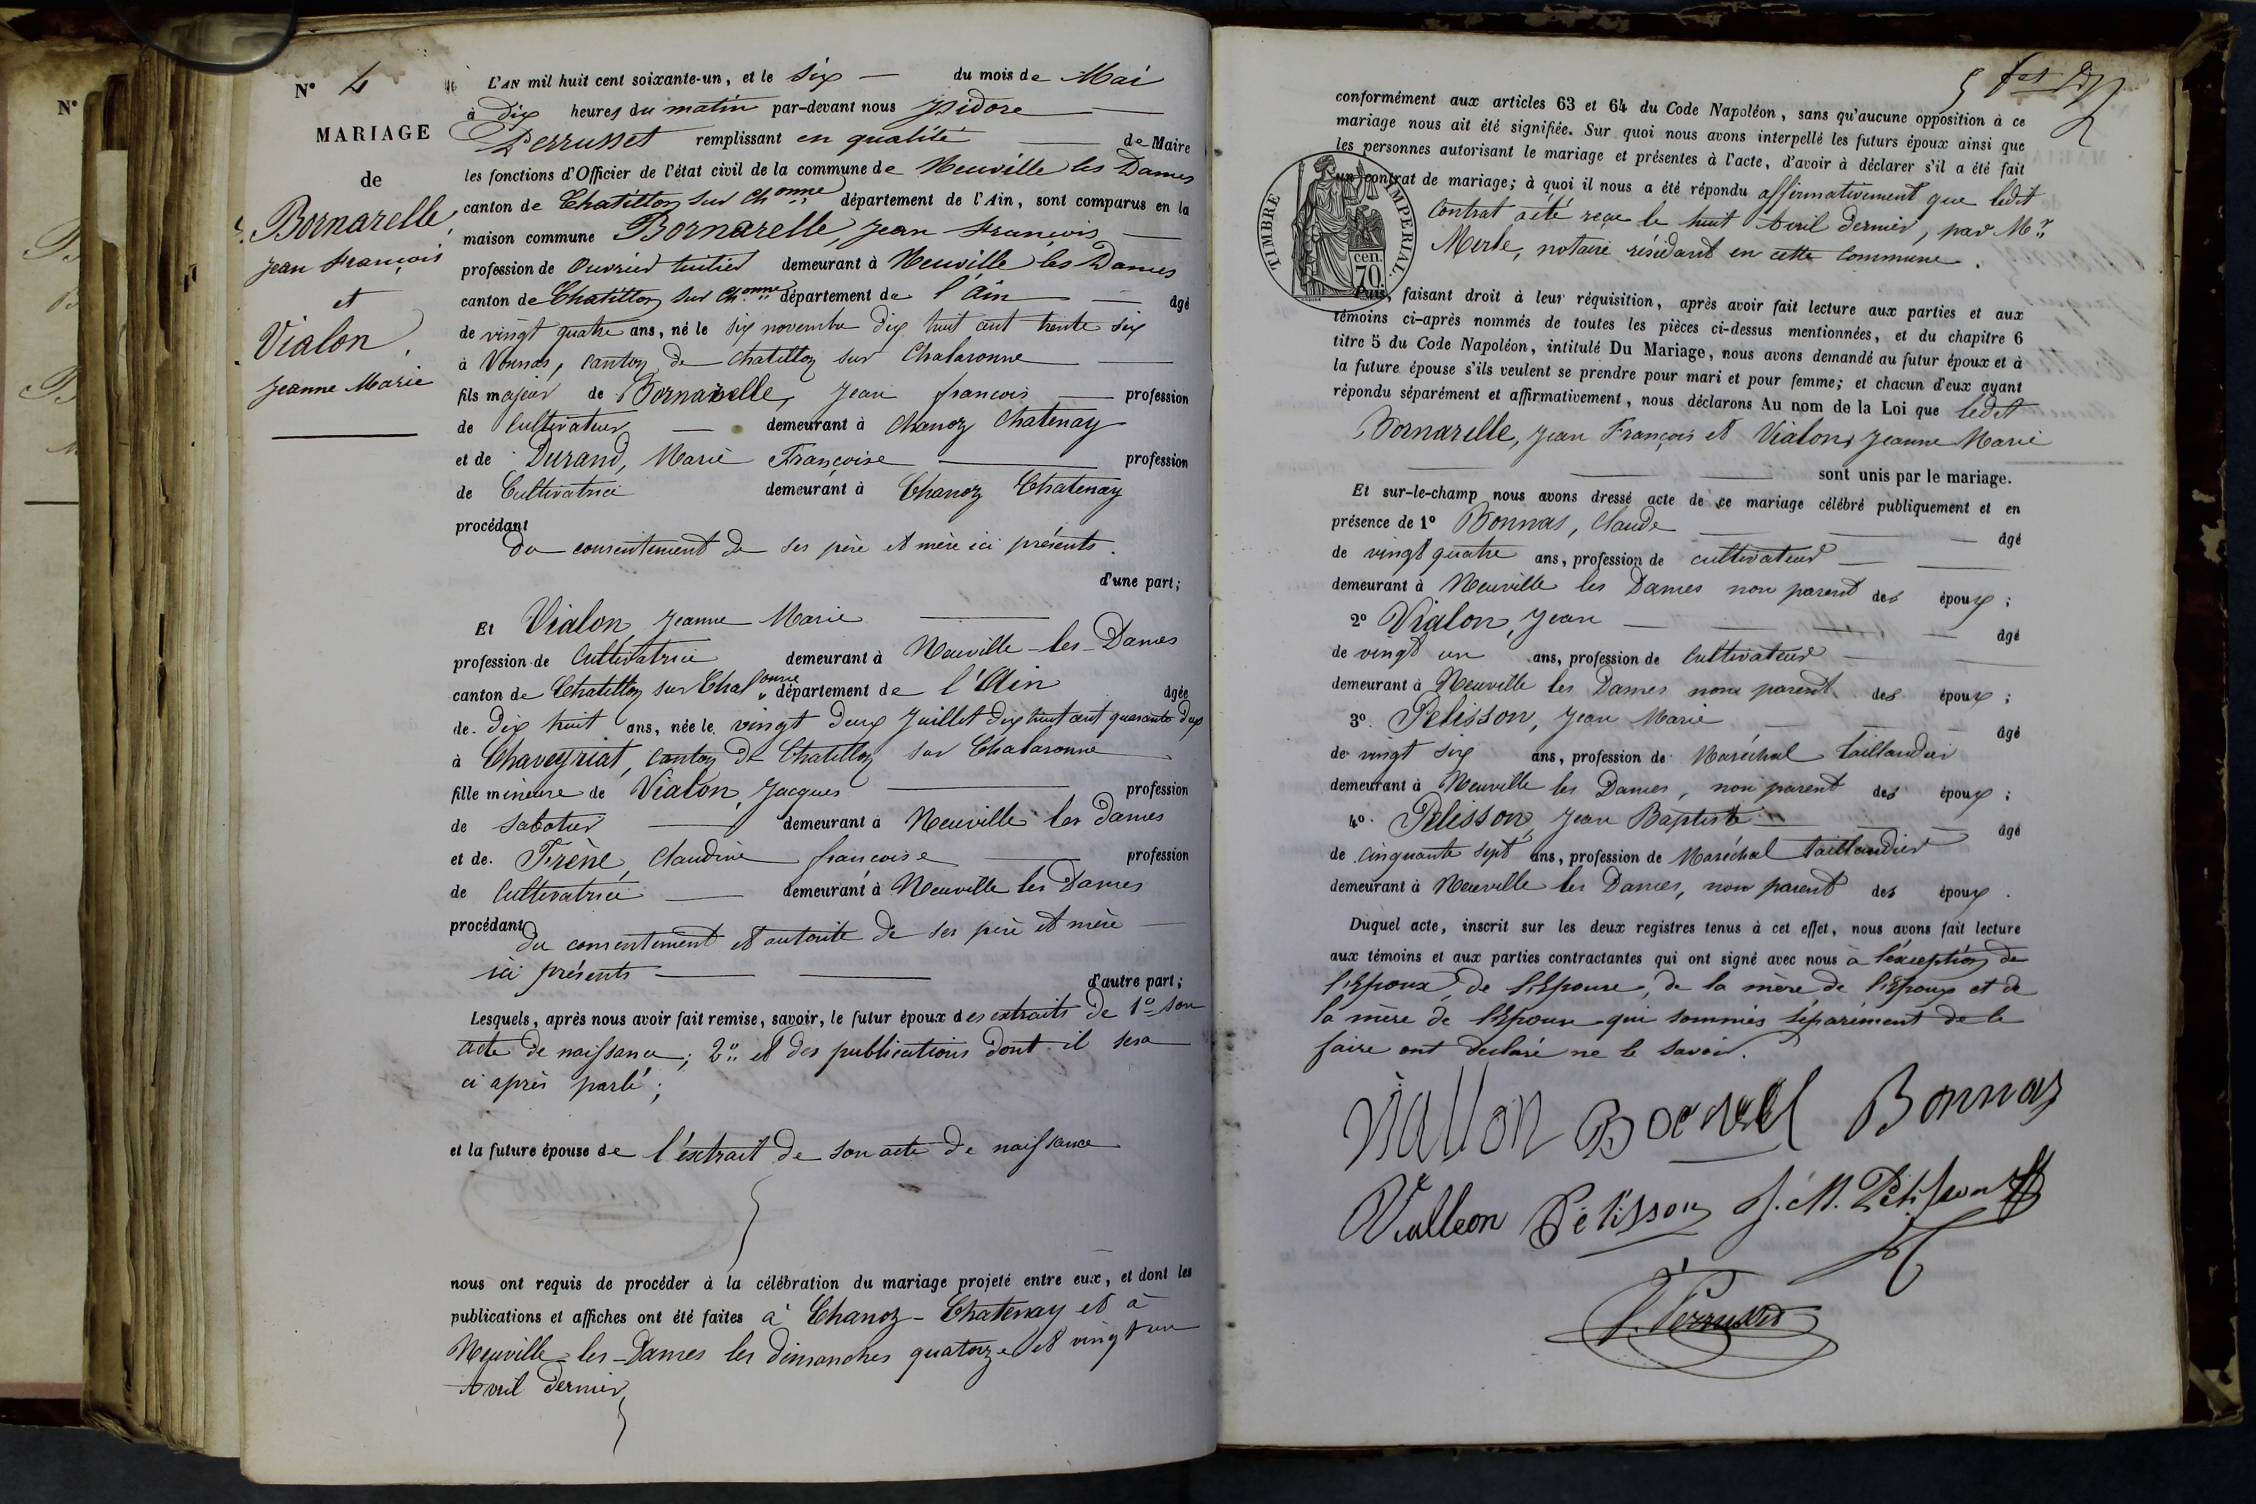 N° 4
MARIAGE
de
Bornarelle,
Jean François
et
Vialon,
Jeanne Marie
L'AN mil huit cent soixante-un, et le six du mois de Mai
à dix heures du matin par-devant nous Isidore
Perrusset remplissant en qualité de Maire
les fonctions d'Officier de l'état civil de la commune de Neuville les Dames
canton de Chatillon sur Chonne département de l'Ain, sont comparus en la
maison commune Bornarelle, Jean François
profession de Ouvrier tuilier demeurant à Neuville les Dames
canton de Chatillon sur Chonne département de l'Ain âgé
de vingt quatre ans, né le six novembre dix huit cent trente six
à Vonnas, canton de Chatillon sur Chalaronne
fils majeur de Bornarelle, Jean françois profession
de Cultivateur demeurant à Chanoz Chatenay
et de Durand, Marie Françoise profession
de Cultivatrice demeurant à Chanoz Chatenay
procédant
du consentement de ses père et mère ici présents.
d'une part;
Et Vialon, Jeanne Marie
profession de Cultivatrice demeurant à Neuville-les-Dames
canton de Chatillon sur Chalonne département de l'Ain âgée
de dix huit ans, née le vingt deux Juillet dix huit cent quarante deux
à Chaveyriat, canton de Chatillon sur Chalaronne
fille mineure de Vialon, Jacques profession
de Sabotier demeurant à Neuville les Dames
et de Frène, Claudine françoise profession
de Cultivatrice demeurant à Neuville les Dames
procédant
du consentement et autorité de ses père et mère
ici présents d'autre part;
Lesquels, après nous avoir fait remise, savoir, le futur époux des extraits de 1° son
acte de naissance; 2° et des publications dont il sera
ci après parlé;
et la future épouse de l'extrait de son acte de naissance
nous ont requis de procéder à la célébration du mariage projeté entre eux, et dont les
publications et affiches ont été faites à Chanoz-Chatenay et à
Neuville-les-Dames les dimanches quatorze et vingt un
Avril dernier,
conformément aux articles 63 et 64 du Code Napoléon, sans qu'aucune opposition à ce
mariage nous ait été signifiée. Sur quoi nous avons interpellé les futurs époux ainsi que
les personnes autorisant le mariage et présentes à l'acte, d'avoir à déclarer s'il a été fait
un contrat de mariage; à quoi il nous a été répondu affirmativement que ledit
Contrat a été reçu le huit Avril dernier, par Me
Merle, notaire résidant en cette commune.
TIMBRE IMPÉRIAL.
cen.
70
Puis, faisant droit à leur réquisition, après avoir fait lecture aux parties et aux
témoins ci-après nommés de toutes les pièces ci-dessus mentionnées, et du chapitre 6
titre 5 du Code Napoléon, intitulé Du Mariage, nous avons demandé au futur époux et à
la future épouse s'ils veulent se prendre pour mari et pour femme; et chacun d'eux ayant
répondu séparément et affirmativement, nous déclarons Au nom de la Loi que ledit
Bornarelle, Jean François et Vialon, Jeanne Marie
sont unis par le mariage.
Et sur-le-champ nous avons dressé acte de ce mariage célébré publiquement et en
présence de 1° Bonnas, Claude âgé
de vingt quatre ans, profession de cultivateur
demeurant à Neuville les Dames non parent des époux;
2° Vialon, Jean âgé
de vingt un ans, profession de Cultivateur
demeurant à Neuville les Dames non parent des époux;
3° Pelisson, Jean Marie âgé
de vingt six ans, profession de Maréchal taillandier
demeurant à Neuville les Dames, non parent des époux;
4° Pelisson, Jean Baptiste âgé
de cinquante sept ans, profession de Maréchal taillandier
demeurant à Neuville les Dames, non parent des époux.
Duquel acte, inscrit sur les deux registres tenus à cet effet, nous avons fait lecture
aux témoins et aux parties contractantes qui ont signé avec nous à l'exception de
l'Epoux, de l'Epouse, de la mère de l'Epoux et de
la mère de l'Epouse qui sommés séparément de le
faire ont déclaré ne le savoir.
Viallon Bonnas
Pélisson J. M. Pélisson
Perrusset